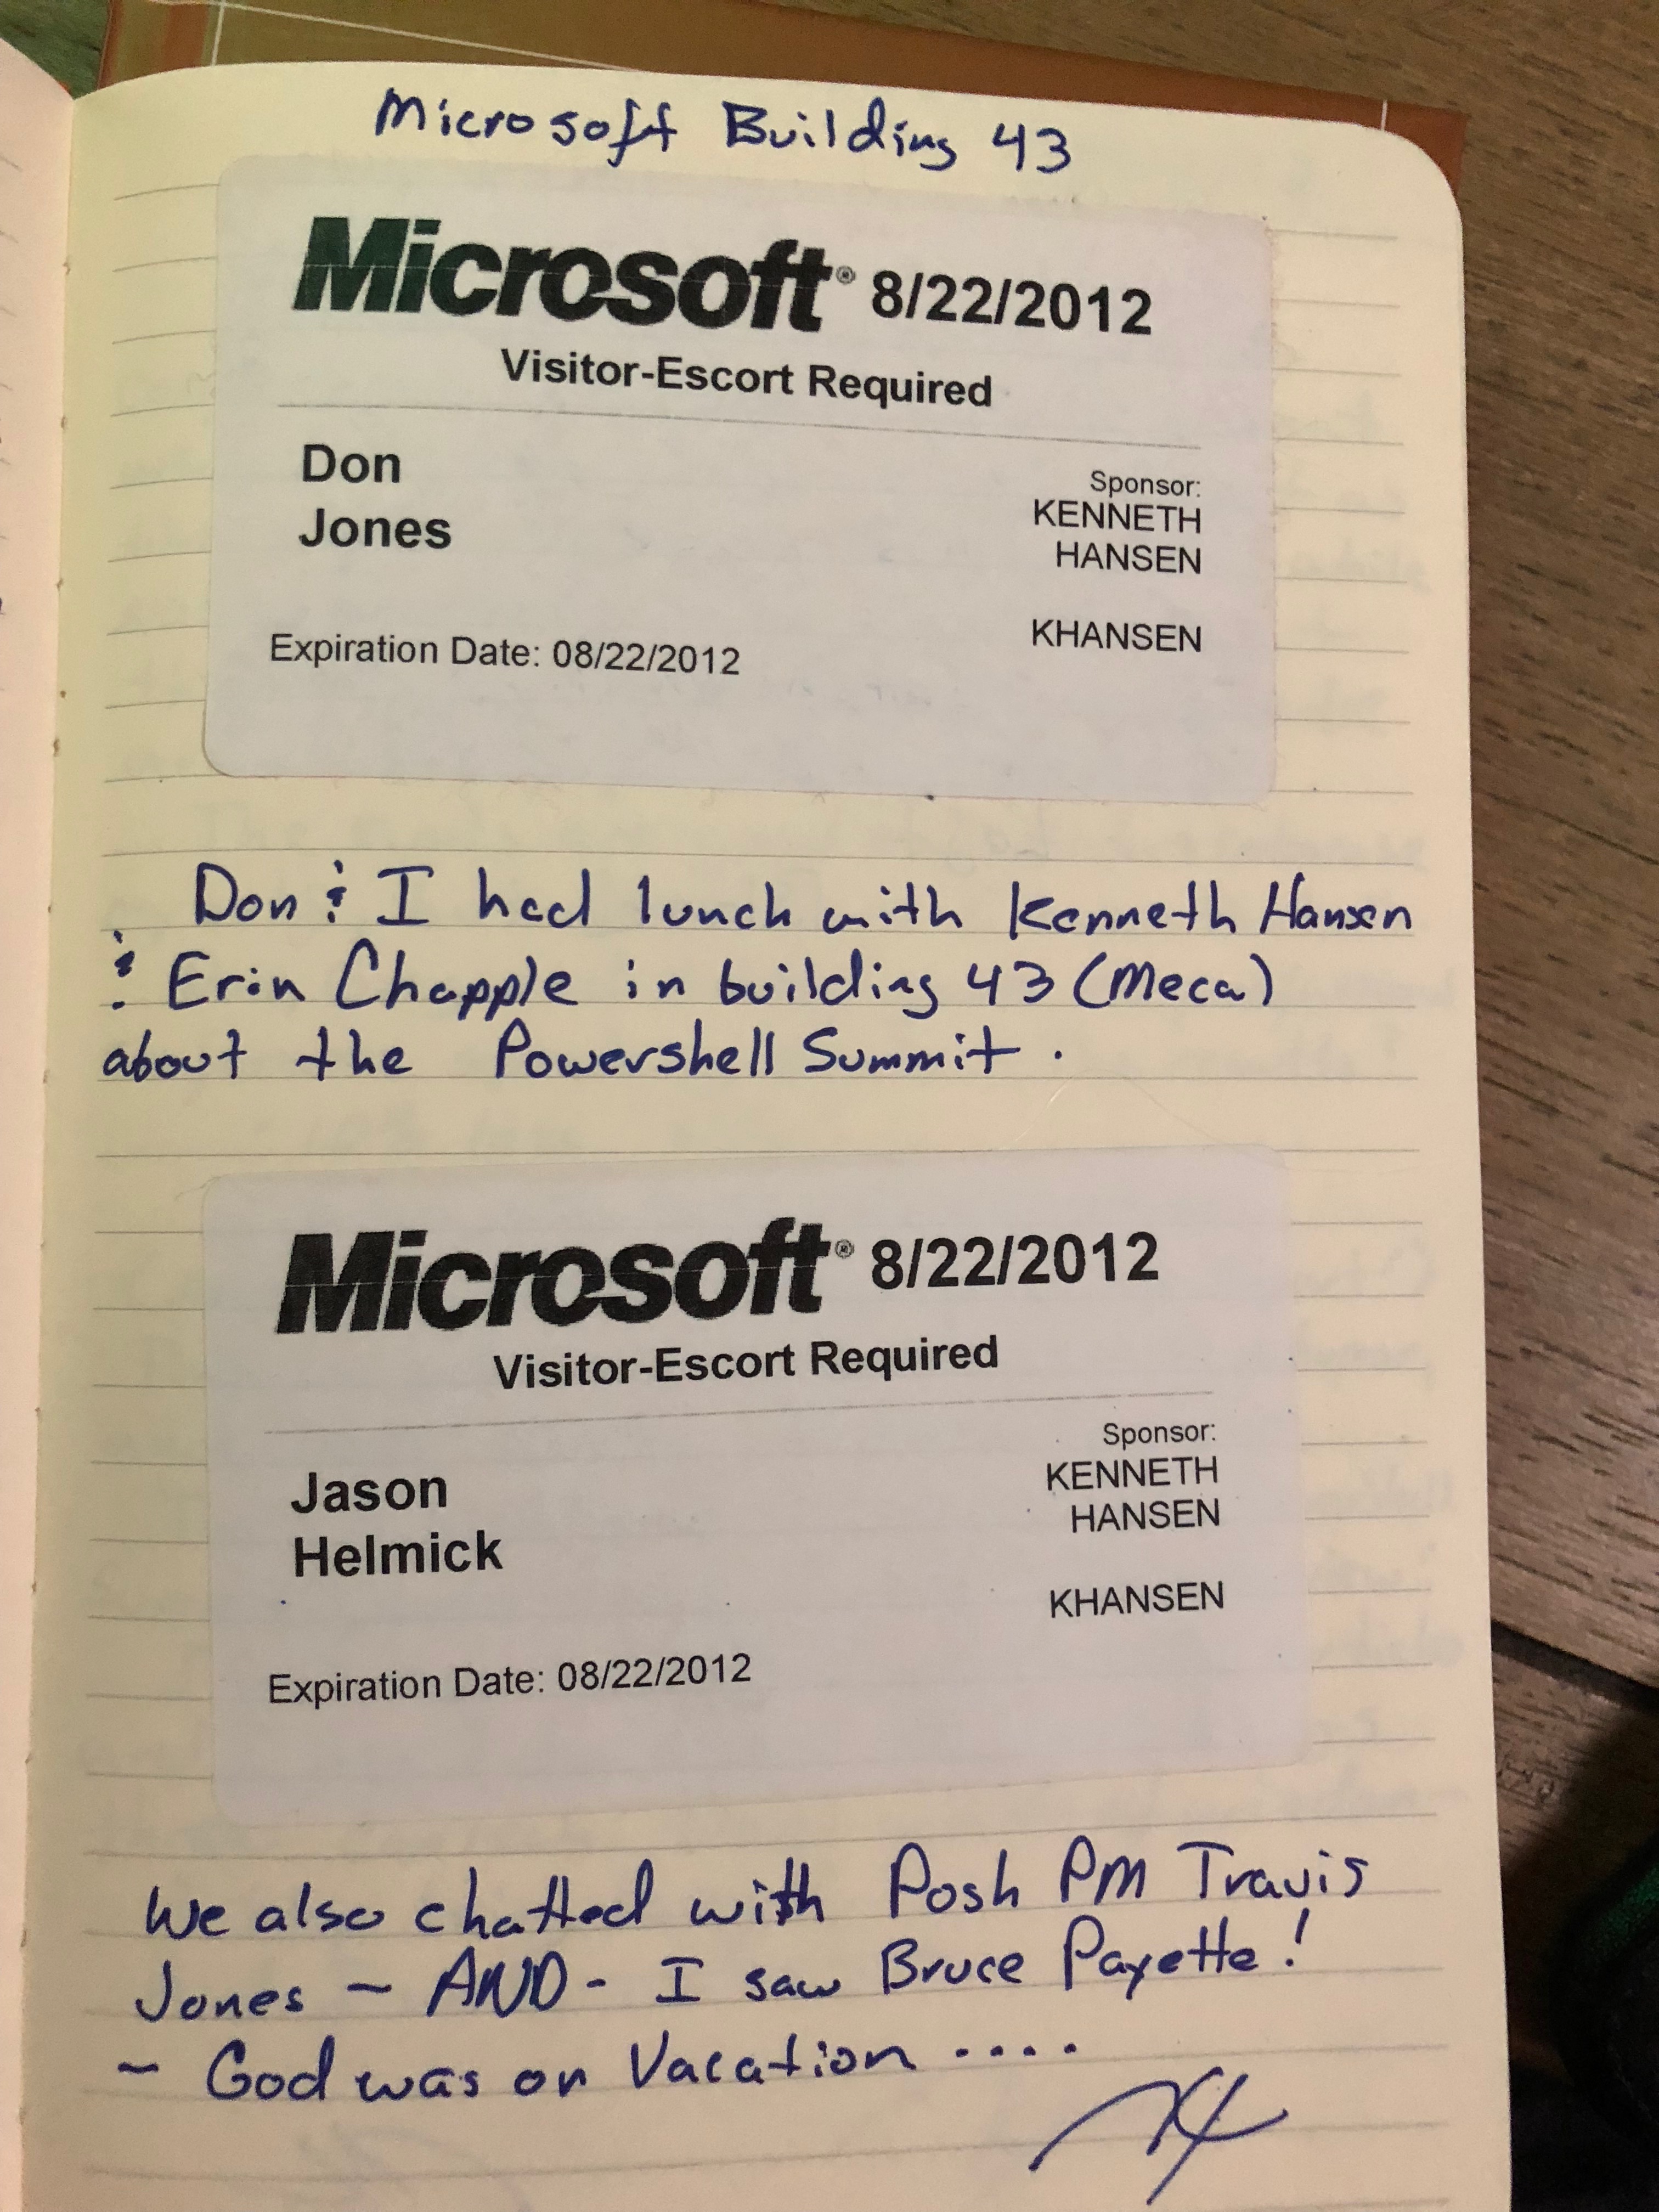 Microsoft Building 43
Microsoft® 8/22/2012
Visitor-Escort Required
Don
Jones
Sponsor:
KENNETH
HANSEN
KHANSEN
Expiration Date: 08/22/2012
Don & I had lunch with Kenneth Hansen
& Erin Chapple in building 43 (Meca)
about the Powershell Summit.
Microsoft® 8/22/2012
Visitor-Escort Required
Jason
Helmick
Sponsor:
KENNETH
HANSEN
KHANSEN
Expiration Date: 08/22/2012
We also chatted with Posh PM Travis
Jones - AND - I saw Bruce Payette!
- God was on Vacation ....